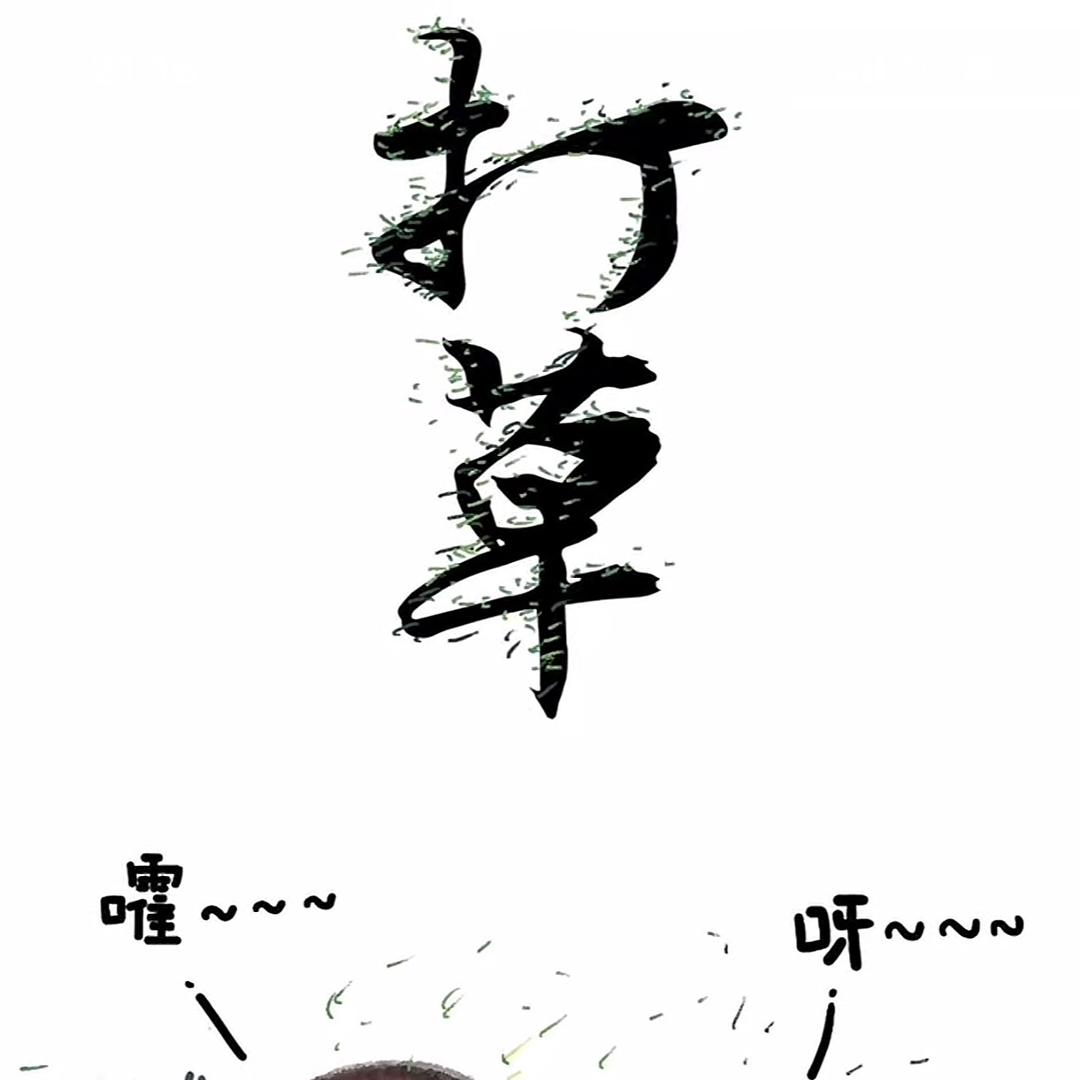 打草
嚯~~~
呀~~~